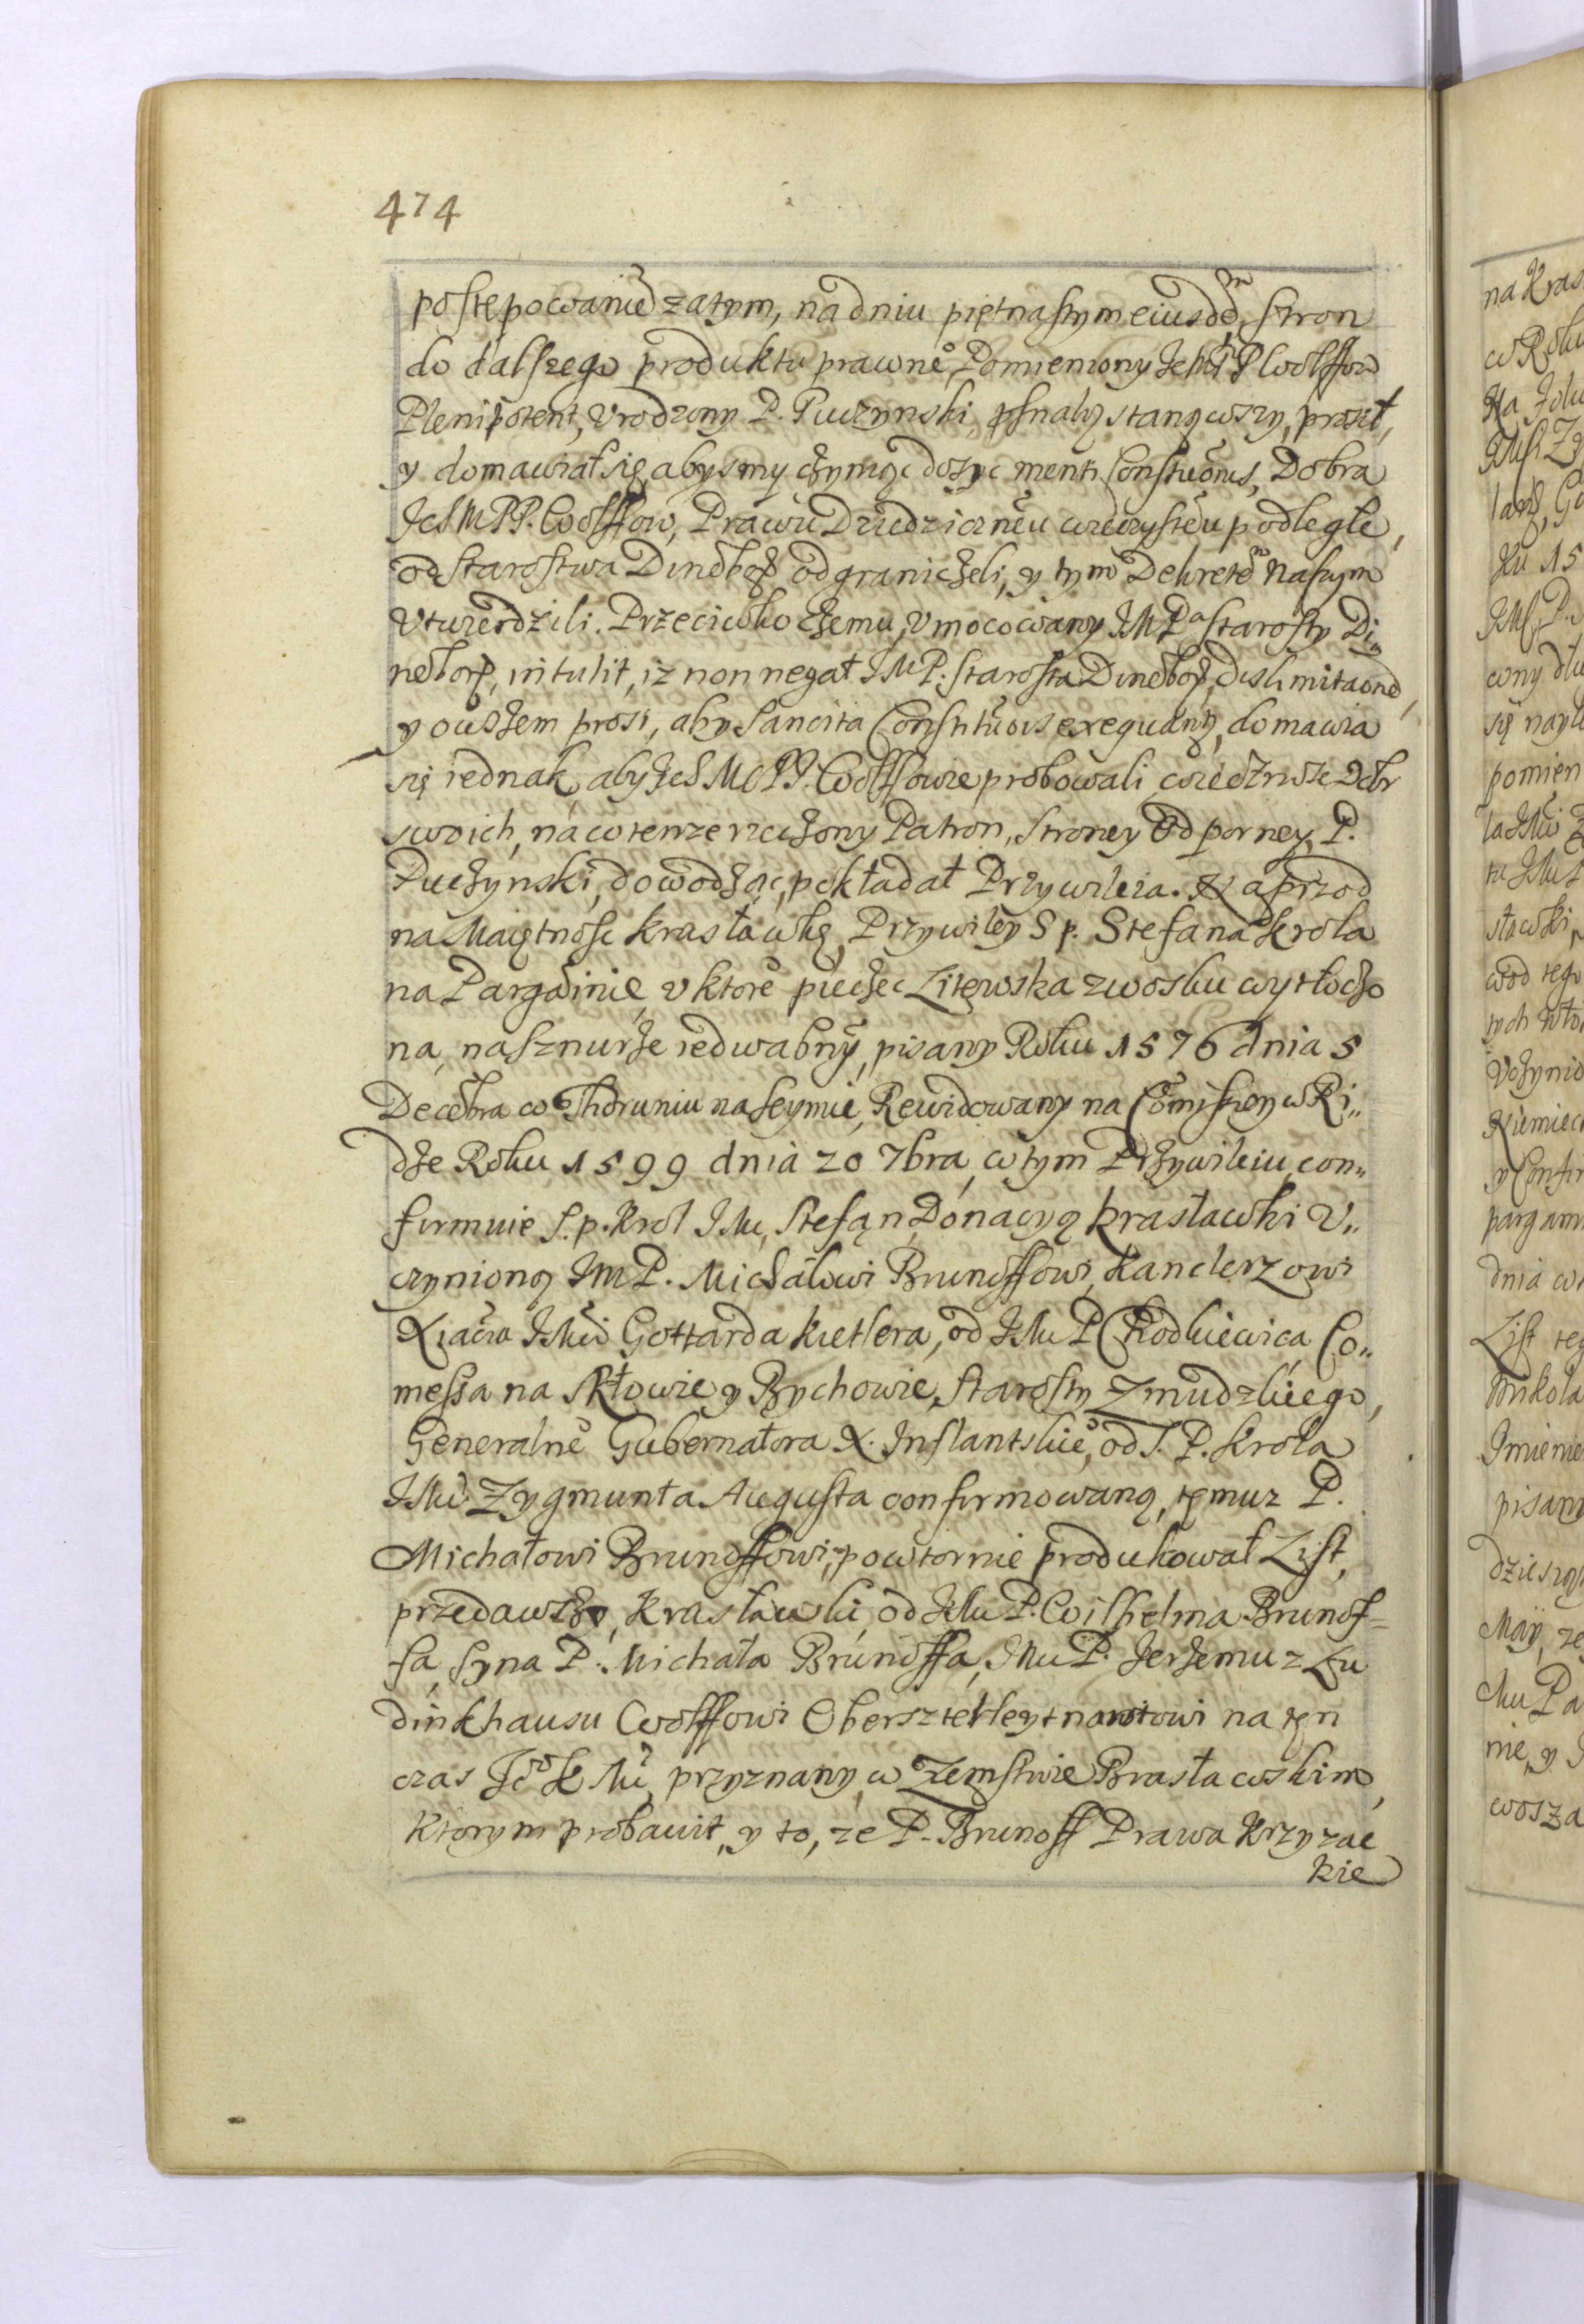 474
postępowanie zatym, na dniu piętnastym eiusdem, stron
do dalszego produktu prawne°, Pomieniony Ichm PP Wolffow
Plenipotent, Vrodzony P. Puczynski, stanąwszy, prosił,
y domawiał się, abysmy czyniąc dosyc menti Constituonis, Dobra
IchMPP. Wolffow, Prawu Dziedziczneu wieczysteu podległe,
od Starostwa Dineborg odgraniczeli, y tym Dekretem Naszym
Vtwierdzili. Przeciwko czemu, Vmocowany IMPa Starosty Di„
neborg, intulit, iz non negat IMP. Starosta Dineborg, dislimitaone,
y owszem prosi, aby Sancita Constituois exequantur, domawia
się iednak, aby Ich MPP. Wolffowie probowali wiecznosc Dobr
swoich, na co tenze rzeczony Patron, Strony Odporney, P.
Puczynski, dowodząc, pokładał Przywileia. Naprzod
na Maiętnosc Krasławkę, Przywiley S p. Stefana Krola
na Pargaminie, v ktore° pieczęc Litewska z wosku wytłoczo
na, na sznurze iedwabny, pisany Roku 1576 dnia 5
Decebra w Thoruniu na Seymie, Rewidowany na Comissyey w Ri„
dze Roku 1599 dnia 20 7bra, w tym Przywileiu con„
firmuie S. p. Krol IMc, Stefan, Donacyą Krasławki v„
czynioną IMP. Michałowi Brunoffowi, Kanclerzowi
Xiącia IMci Gottarda Kietlera, od IMc P Chodkiewica Co„
messa na Skłowie y Bychowie, Starosty Zmudzkiego,
Generalne° Gubernatora X. Inflantskie°, od S. P. Krola
IMci Zygmunta Augusta confirmowaną, temuz P.
Michałowi Brunoffowi, powtornie produkował List,
przedawczy, Krasławki, od IMc P. Wilhelma Brunof-
fa, syna P. Michała Brunoffa, IMc P. Jerzemu z Lu
dinkhausu Wolffowi Oberszterleytnantowi na ten
czas Je° K Mci, przyznany w Zemstwie Brasławskim,
ktorym probauit, y to, ze P. Brunoff Prawa Krzyzac
kie